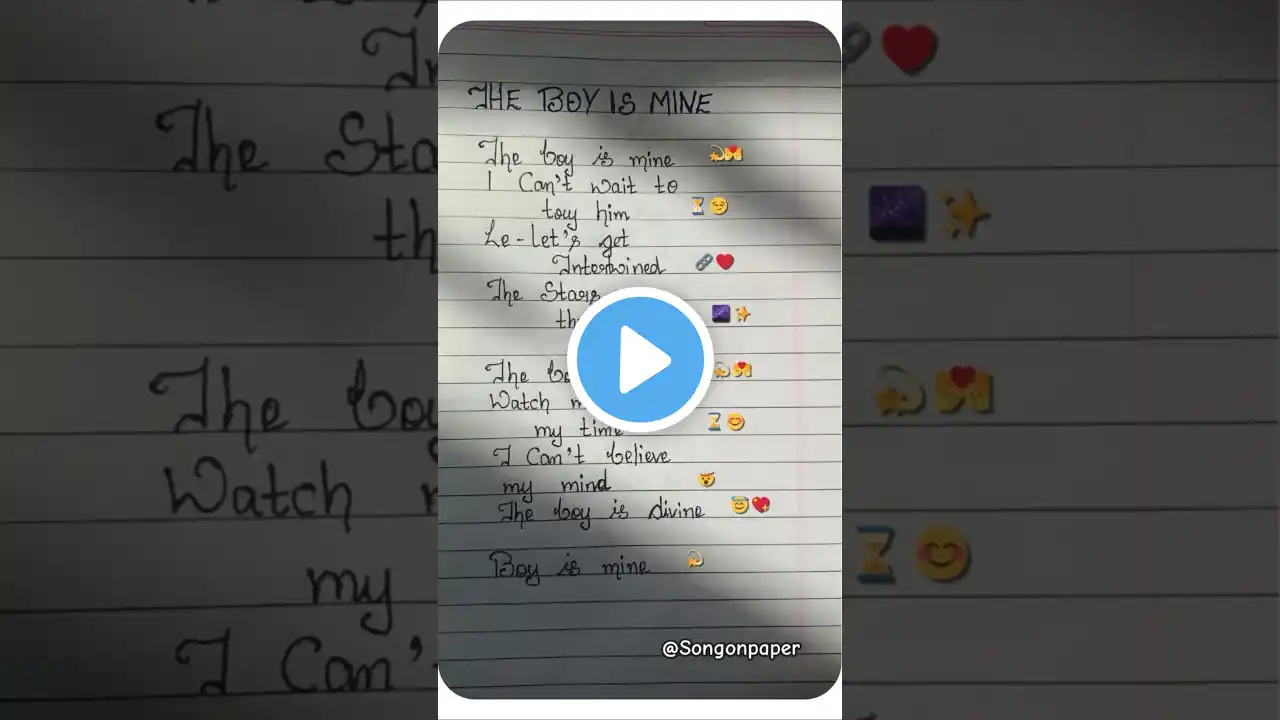 THE BOY IS MINE
The boy is mine
I Can't wait to
try him
Le-let's get
Intertwined
The Stars
The
Watch
my time
I Can't believe
my mind
The boy is divine
Boy is mine
@Songonpaper